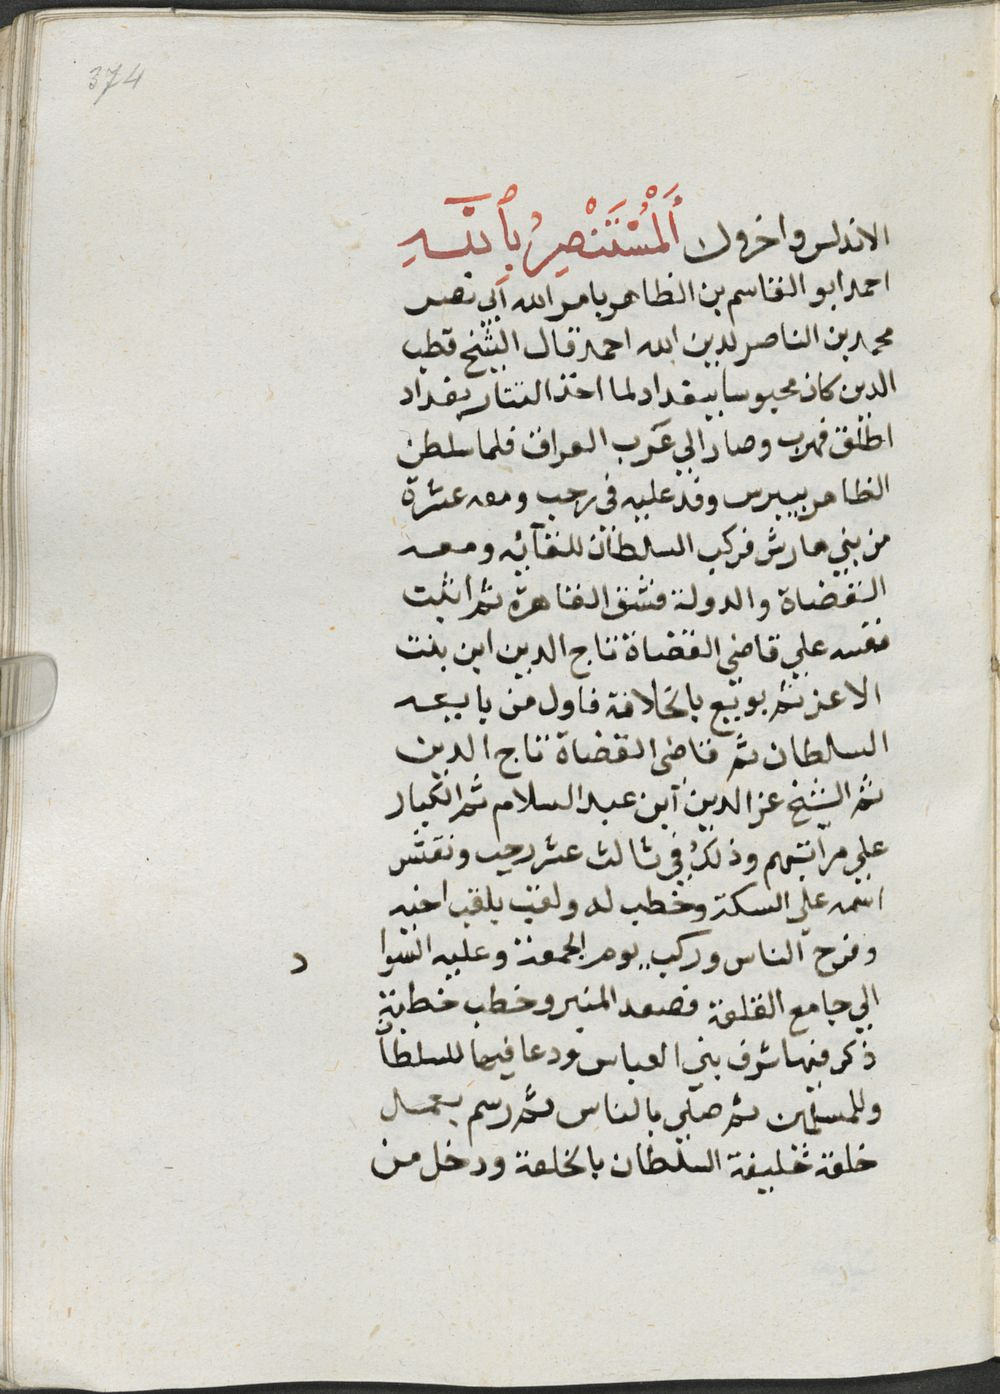 374
الاندلس واخرون أَلْمُسْتَنْصِرُ بِٱللَّهِ
احمد ابو القاسم بن الظاهر بامر الله أبي نصر
محمد بن الناصر لدين الله احمد قال الشيخ قطب
الدين كان محبوسا ببغداد لما اخذ التتار بغداد
اطلق فهرب وصار الي عرب العراق فلما سلطن
الظاهر بيبرس وفد عليه في رجب ومعه عشرة
من بني مهارش فركب السلطان للقآئه ومعه
القضاة والدولة فشق القاهرة ثم اثبت
نفسه علي قاضي القضاة تاج الدين ابن بنت
الاعز ثم بويع بالخلافة فاول من بايعه
السلطان ثم قاضى القضاة تاج الدين
ثم الشيخ عز الدين ابن عبد السلام ثم الكبار
علي مراتبهم وذلك في ثالث عشر رجب ونقش
اسمه علي السكة وخطب له ولقب بلقب اخيه
وفرح الناس وركب يوم الجمعة وعليه السوا د
الي جامع القلعة فصعد المنبر وخطب خطبة
ذكر فيها شرف بني العباس ودعا فيها للسلطاً
وللمسلمين ثم صلي بالناس ثم رسم بعمل
خلعة خليفة السلطان بالخلعة ودخل من